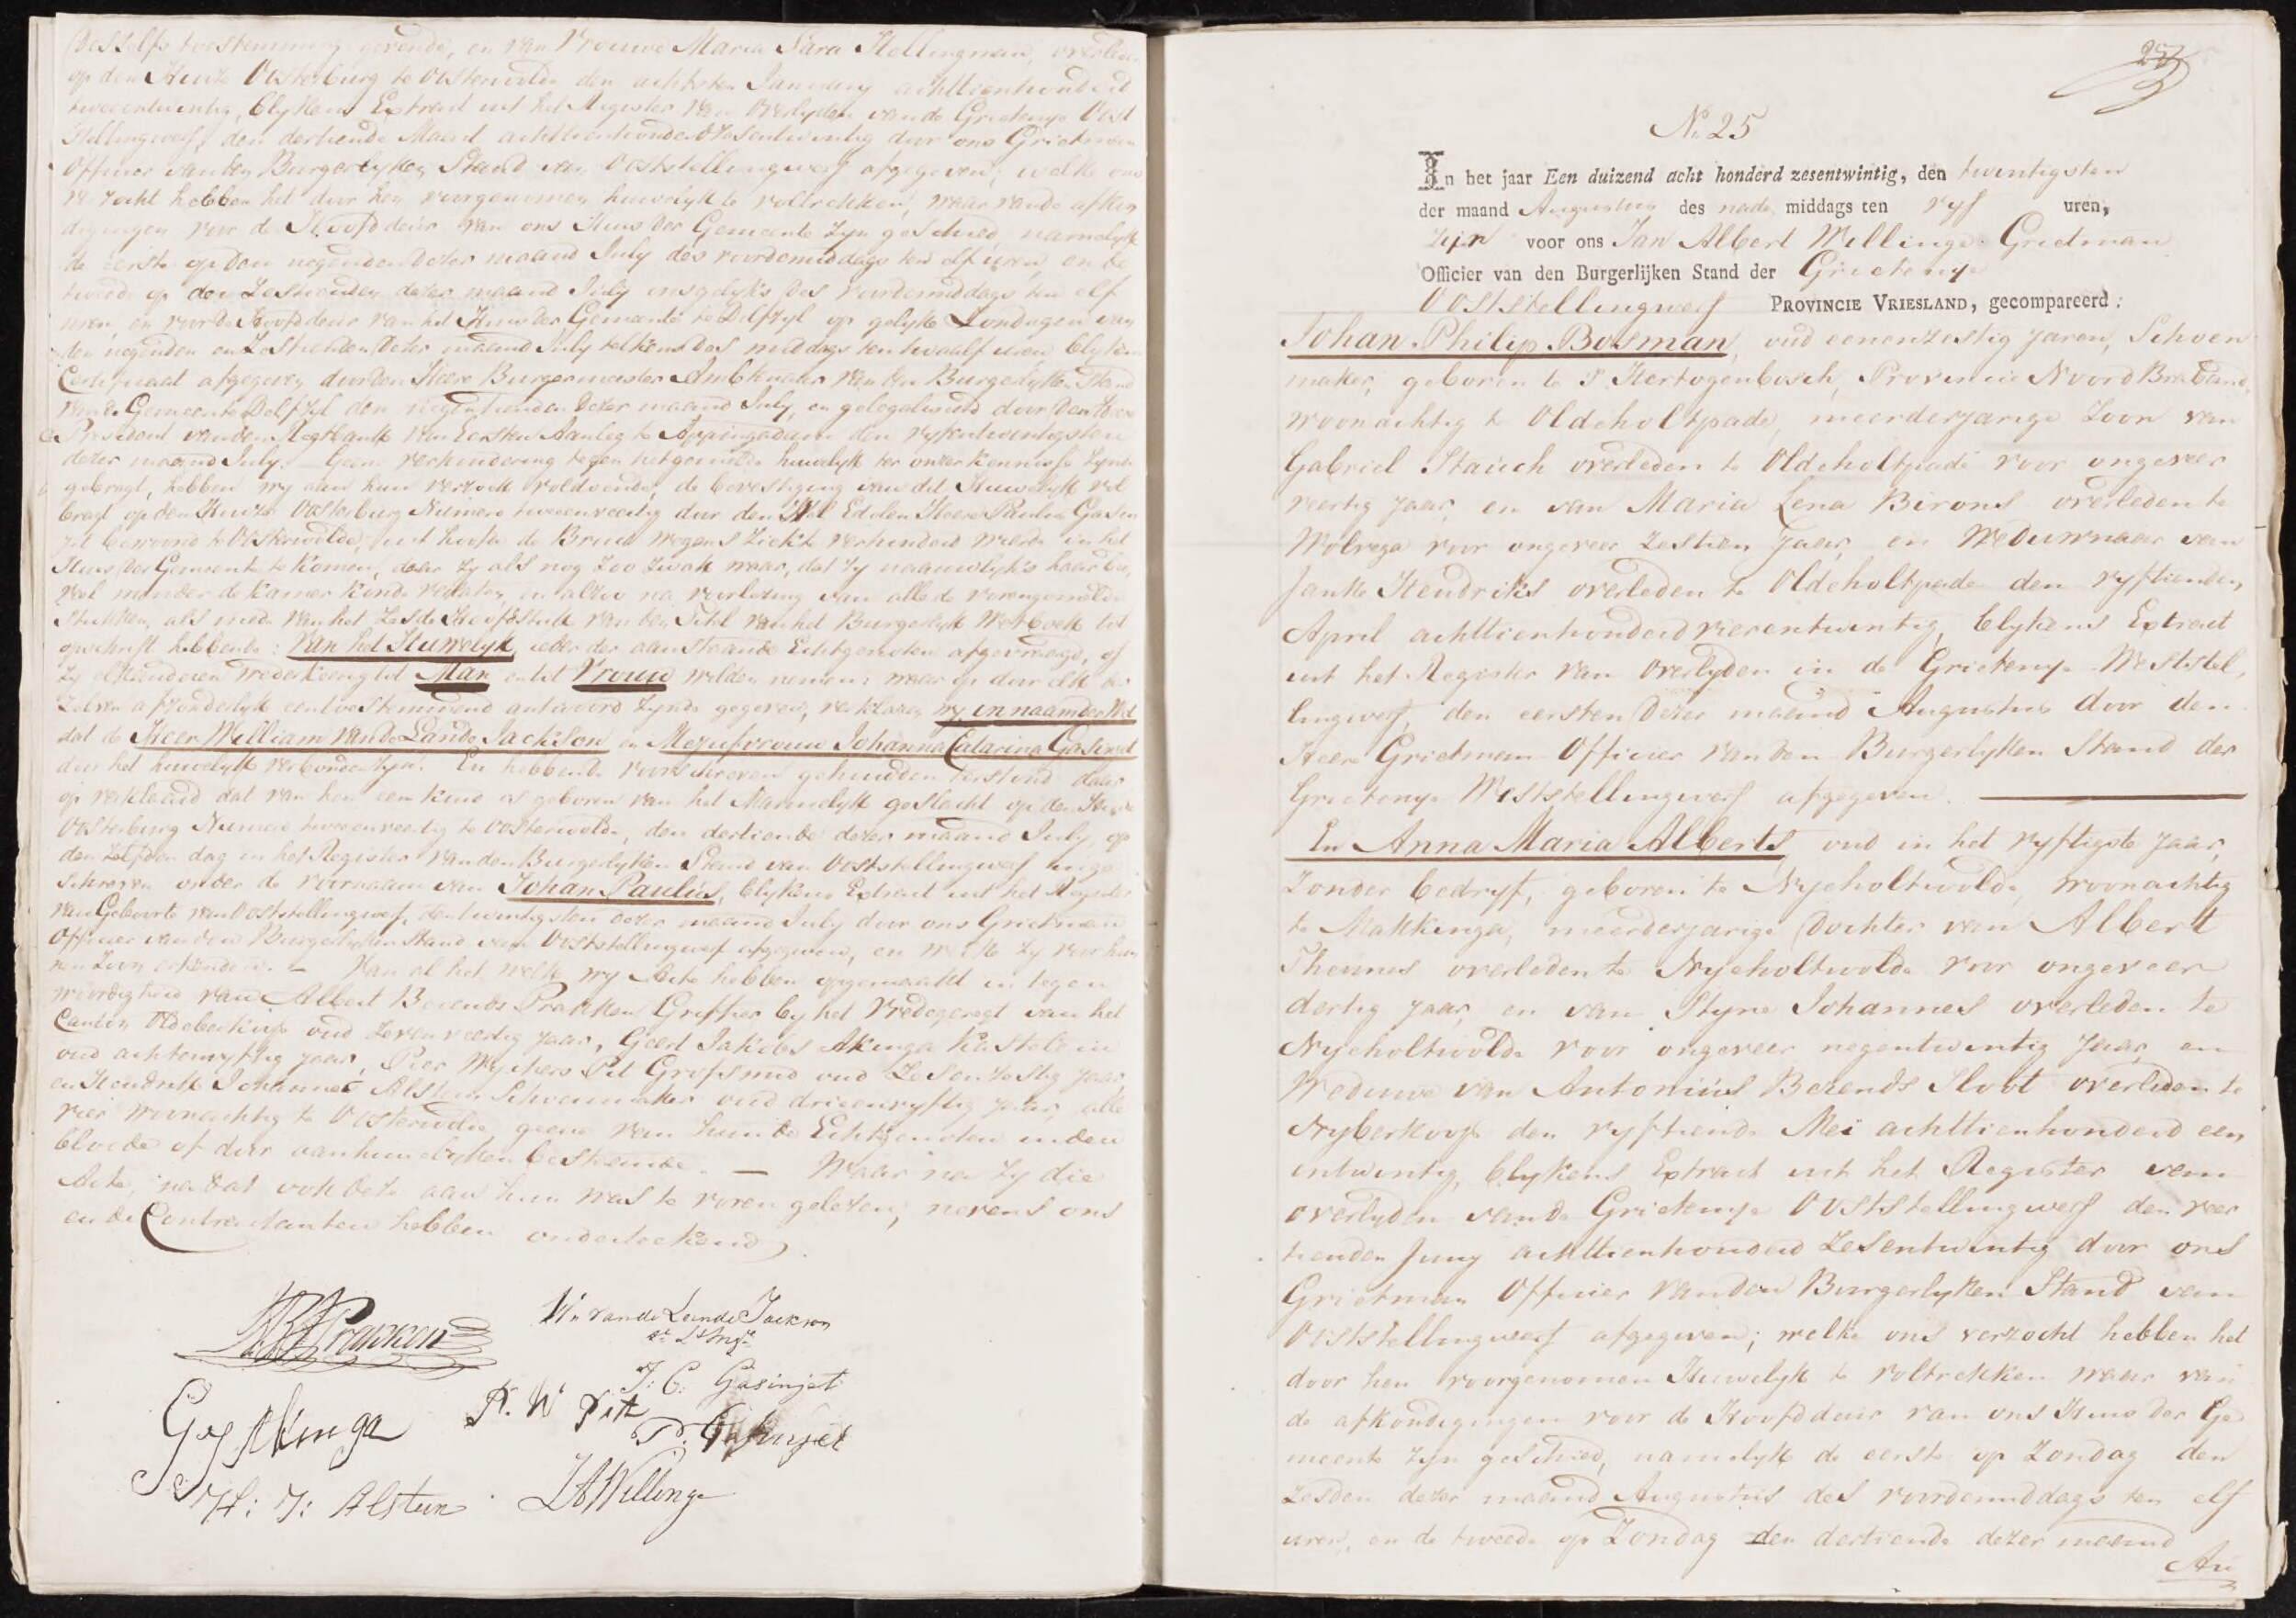 Deszelfs toestemming gevende, en van Vrouwe Maria Sara Hellingman, overleden
op den Huize Oosterburg te Oosterwolde den achtsten January achttienhonderd
tweeentwintig, blykens Extract uit het Register van Overlyden van de Grietenye Oost
Stellingwerf, den dertiende Maart achttienhonderdzesentwintig door ons Grietman
Officier van den Burgerlyken Stand van Ooststellingwerf afgegeven; welke ons
verzocht hebben het door hen voorgenomen huwelyk te voltrekken, waar van de afkon
digingen voor de Hoofddeur van ons Huis der Gemeente zyn geschied, namelyk
de eerste op den negenden dezer maand July des voordemiddags ten elf uren, en de
tweede op den Zestienden dezer maand July insgelyks des voordemiddags ten elf
uren, en voor de Hoofddeur van het Huis der Gemeente te Delfzyl op gelyke Zondagen van
den negenden en Zestienden dezer maand July telkens des middags ten twaalf uren blykens
Certificaat afgegeven door den Heere Burgermeester Ambtenaar van den Burgerlyken Stand
van de Gemeente Delfzyl den negentienden dezer maand July, en gelegaliseerd door den Heere
President van den Regtbank van Eersten Aanleg te Appingadam den vyfentwintigsten
dezer maand July. Geene verhindering tegen het gemelde huwelyk ter onzer kennisse zynde
gebragt, hebben wy aan hun verzoek voldoende, de bevestiging van dit Huwelyk vol
bragt op den Huize Oosterburg Numero tweeenveertig door den Wel Edelen Heere Paulus Gasin
jet bewoond te Oosterwolde, uit hoofde de Bruid wegens ziekte verhinderd werde in het
Huis der Gemeente te komen, daar zy als nog zoo zwak was, dat zy naauwelyks haar bed,
veel minder de kamer konde verlaten, en alzoo na voorlezing van alle de vorengemelde
stukken, als mede van het Zesde Hoofdstuk van den Titel van het Burgerlyk Wetboek tot
opschrift hebbende: Van het Huwelyk, ieder der aanstaande Echtgenoten afgevraagd, of
zy elkanderen wederkeerig tot Man en tot Vrouw wilden nemen: waar op door elk der
Zelven afzonderlyk eentoestemmend antwoord zynde gegeven, verklaren wy in naam der Wet
dat de Heer William van de Lande Jackson en Mejufvrouw Johanna Catarina Gasinjet
dus het huwelyk verbonden zyn. En hebbende voorschreven gehuwden terstond daar
op verklaard dat van hen een kind is geboren van het Mannelyk geslacht op den Huize
Oosterburg Numero tweeenveertig te Oosterwolde, den dertiende dezer maand July, op
den zelfden dag in het Register van den Burgerlyken Stand van Ooststellingwerf inge
schreven onder de voornaam van Johan Paulus, blykens Extract uit het Register
van Geboorte van Ooststellingwerf, den twintigsten dezer maand July door ons Grietman
Officier van den Burgerlyken Stand van Ooststellingwerf afgegeven, en welke zy voor hun
nen Zoon erkenden. — Van al het welk wy Acte hebben opgemaakt in tegen
woordigheid van Albert Berends Prakken Griffier by het Vredegeregt van het
Canton Oldeberkoop oud zevenveertig jaar, Geert Jakobs Akinga Kastelein
oud achtenvyftig jaar, Pier Wychers Pit Grofsmid oud Zesenzestig jaar,
en Hendrik Johannes Alsteen Schoenmaker oud drieenvyftig jaar, alle
vier woonachtig te Oosterwolde geene van hun de Echtgenoten in den
bloede of door aanhuwelyken bestaande. — Waar na zy die
Acte, na dat ook deze aan hun was te voren gelezen, nevens ons
en de Contractanten hebben onderteekend.
ABPrakken
Wm van de Lande Jackson
J: C: Gasinjet
GJAkinga
P. W Pitt
P: Gasinjet
H: J: Alsteen
JAWillinge
25
No. 25
In het jaar Een duizend acht honderd zesentwintig, den twintigsten
der maand Augustus des nade middags ten vyf uren,
zijn voor ons Jan Albert Willinge Grietman
Officier van den Burgerlijken Stand der Grietenye
Ooststellingwerf PROVINCIE VRIESLAND, gecompareerd:
Johan Philip Bosman, oud eenenzestig jaren, Schoen
maker, geboren te S Hertogenbosch, Provincie Noord Braband,
woonachtig te Oldeholtpade, meerderjarige Zoon van
Gabriel Stauch overleden te Oldeholtpade voor ongeveer
veertig jaar, en van Maria Lena Birons overleden te
Wolvega voor ongeveer zestien jaar, en Weduwnaar van
Janke Hendriks overleden te Oldeholtpade den vyftienden
April achttienhonderdvierentwintig, blykens Extract
uit het Register van Overlyden in de Grietenye Weststel,
lingwerf, den eersten dezer maand Augustus door den
Heere Grietman Officier van den Burgerlyken Stand der
Grietenye Weststellingwerf afgegeven.
En Anna Maria Alberts, oud in het vyftigste jaar,
Zonder bedryf, geboren te Nyeholtwolde, woonachtig
te Makkinga, meerderjarige Dochter van Albert
Theunes overleden te Nyeholtwolde voor ongeveer
dertig jaar, en van Styne Johannes overleden te
Nyeholtwolde voor ongeveer negentwintig jaar, en
Weduwe van Antonius Berends Sloot overleden te
Nyberkoop den vyftiende Mei achttienhonderd een
entwintig, blykens Extract uit het Register van
overlyden van de Grietenye Ooststellingwerf den veer
tienden Juny achttienhonderd Zesentwintig door ons
Grietman Officier van den Burgerlyken Stand van
Ooststellingwerf afgegeven; welke ons verzocht hebben het
door hen voorgenomen Huwelyk te voltrekken waar van
de afkondigingen voor de Hoofddeur van ons Huis der Ge
meente zyn geschied, namelyk de eerste op Zondag den
zesden dezer maand Augustus des voordemiddags ten elf
uren, en de tweede op Zondag den dertiende dezer maand
Au